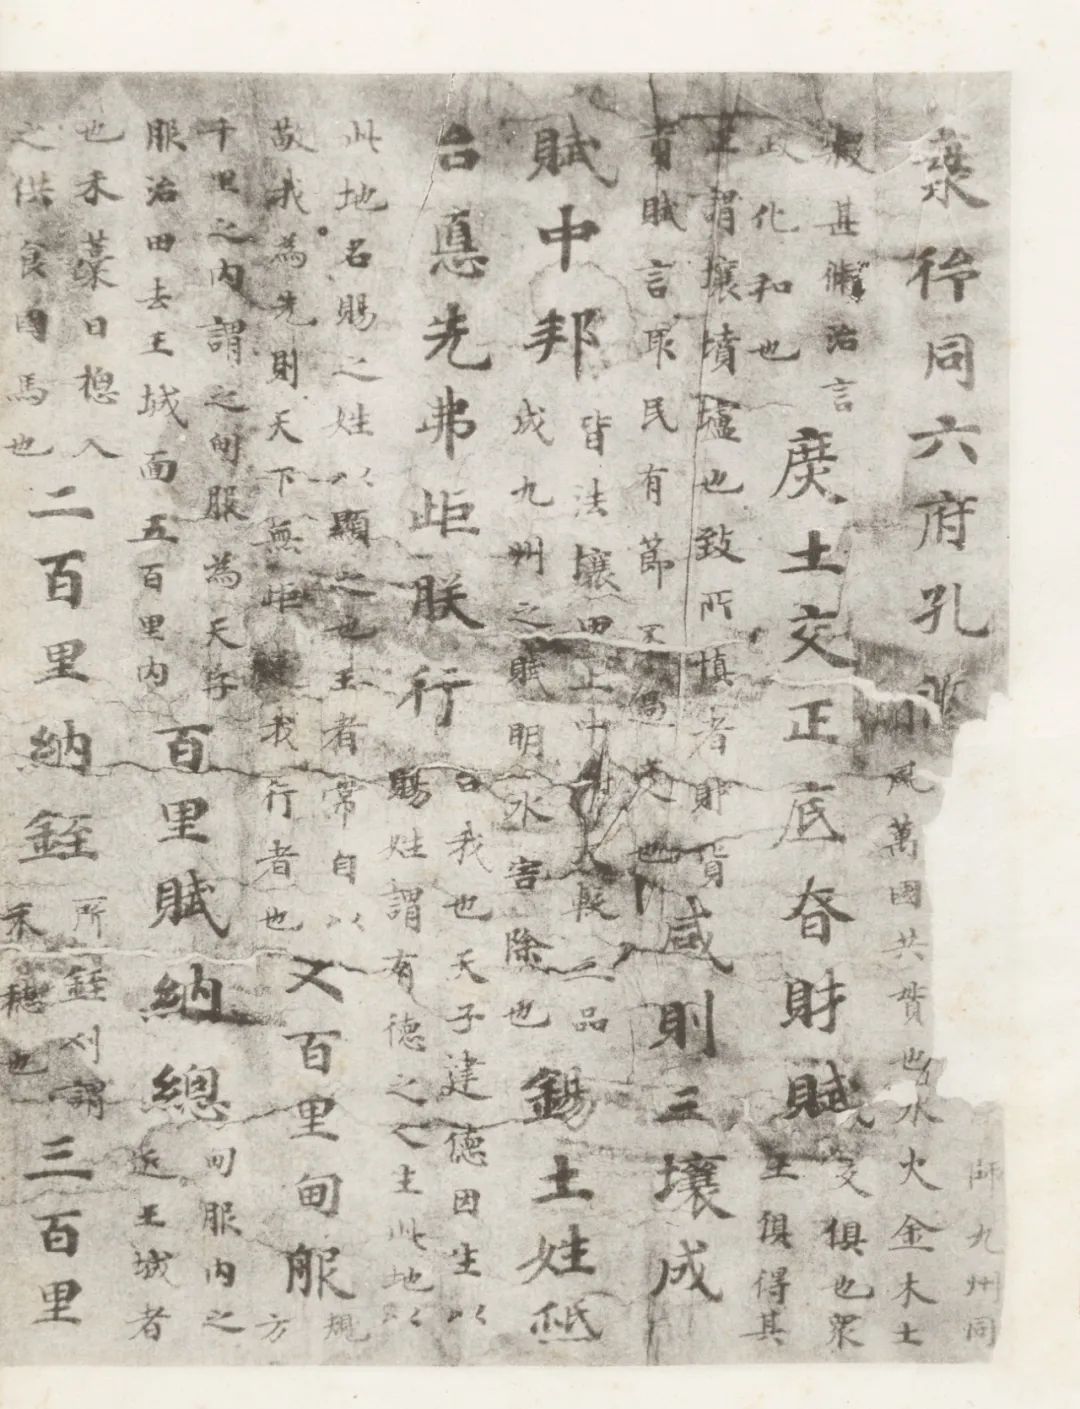 同六府孔
師九州同
風萬國共貫也水火金木土
穀甚脩治言
政化和也
庶土交正底昚財賦
交俱也衆
土俱得其
正謂壤墳壚也致所慎者財貨
貢賦言取民有節不過度也
咸則三壤成
賦中邦
皆法壤田上中下大較三品
成九州之賦明水害除也
錫土姓祗
台悳先弗岠朕行
台我也天子建德因生以
賜姓謂有德之人生此地以
此地名賜之姓以顯之也王者常自以
敬我為先則天下無岠我行者也
㐅百里甸服
規
方
千里之內謂之甸服為天子
服治田去王城面五百里內
百里賦納總
甸服內之
近王城者
也禾藁曰總入
之供食國馬也
二百里納銍
所銍刈謂
禾穗也
三百里